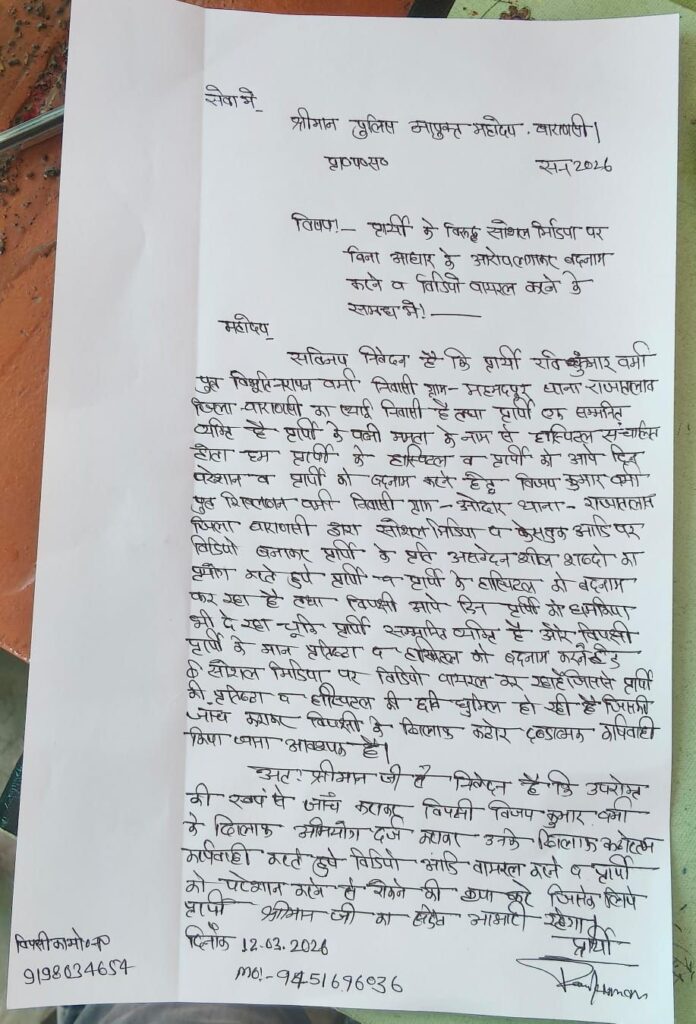 सेवा में
श्रीमान पुलिस आयुक्त महोदय. वाराणसी।
प्रा०प०सं० सन् 2026
विषय:- प्रार्थी के विरुद्ध सोशल मिडिया पर
बिना आधार के आरोप लगाकर बदनाम
करने व विडियो वायरल करने के
सम्बन्ध में।
महोदय,
सविनय निवेदन है कि प्रार्थी रवि कुमार वर्मा
पुत्र विभूति नरायन वर्मा निवासी ग्राम- महमदपुर थाना- राजातालाब
जिला- वाराणसी का स्थाई निवासी है तथा प्रार्थी एक सम्मानित
व्यक्ति है प्रार्थी के पत्नी ममता के नाम से हास्पिटल संचालित
होता हम प्रार्थी के हास्पिटल व प्रार्थी को आये दिन
परेशान व प्रार्थी को बदनाम करने हेतु- विजय कुमार वर्मा
पुत्र शिवलखन वर्मा निवासी ग्राम- ओदार थाना- राजातालाब
जिला वाराणसी द्वारा सोशल मिडिया व फेसबुक आदि पर
विडियो बनाकर प्रार्थी के प्रति असंवेदन शील शब्दो का
प्रयोग करते हुये प्रार्थी व प्रार्थी के हास्पिटल को बदनाम
कर रहा है तथा विपक्षी आये दिन प्रार्थी को धमकिया
भी दे रहा चूंकि प्रार्थी सम्मानित व्यक्ति है और विपक्षी
प्रार्थी के मान प्रतिष्ठा व हास्पिटल को बदनाम करने हेतु
के सोशल मिडिया पर विडियो वायरल कर रहा है जिससे प्रार्थी
की प्रतिष्ठा व हास्पिटल की छवि धुमिल हो रही है जिसकी
जाँच कराकर विपक्षी के खिलाफ कठोर दण्डात्मक कार्यवाही
किया जाना आवश्यक है।
अतः श्रीमान जी से निवेदन है कि उपरोक्त
की स्वयं से जाँच कराकर विपक्षी विजय कुमार वर्मा
के खिलाफ अभियोग दर्ज करवा उनके खिलाफ कठोरतम
कार्यवाही करते हुये विडियो आदि वायरल करने व प्रार्थी
को परेशान करने से रोकने की कृपा करे जिसके लिये
प्रार्थी श्रीमान जी का सदैव आभारी रहेगा।
दिनाँक 12.03.2026 प्रार्थी
विपक्षी का मो०न०
9198034654
mo!- 9451696036